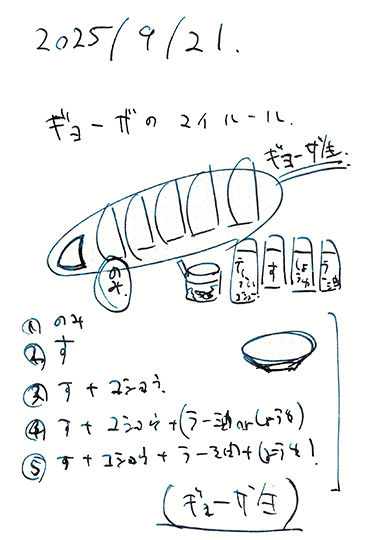 2025/9/21.
ギョーザの マイルール.
ギョーザ
のみ
コショー
す
しょうゆ
ラー油
① のみ
② す
③ す + コショウ.
④ す + コショウ + (ラー油 or しょうゆ)
⑤ す + コショウ + ラー油 + しょうゆ!
(ギョーザ